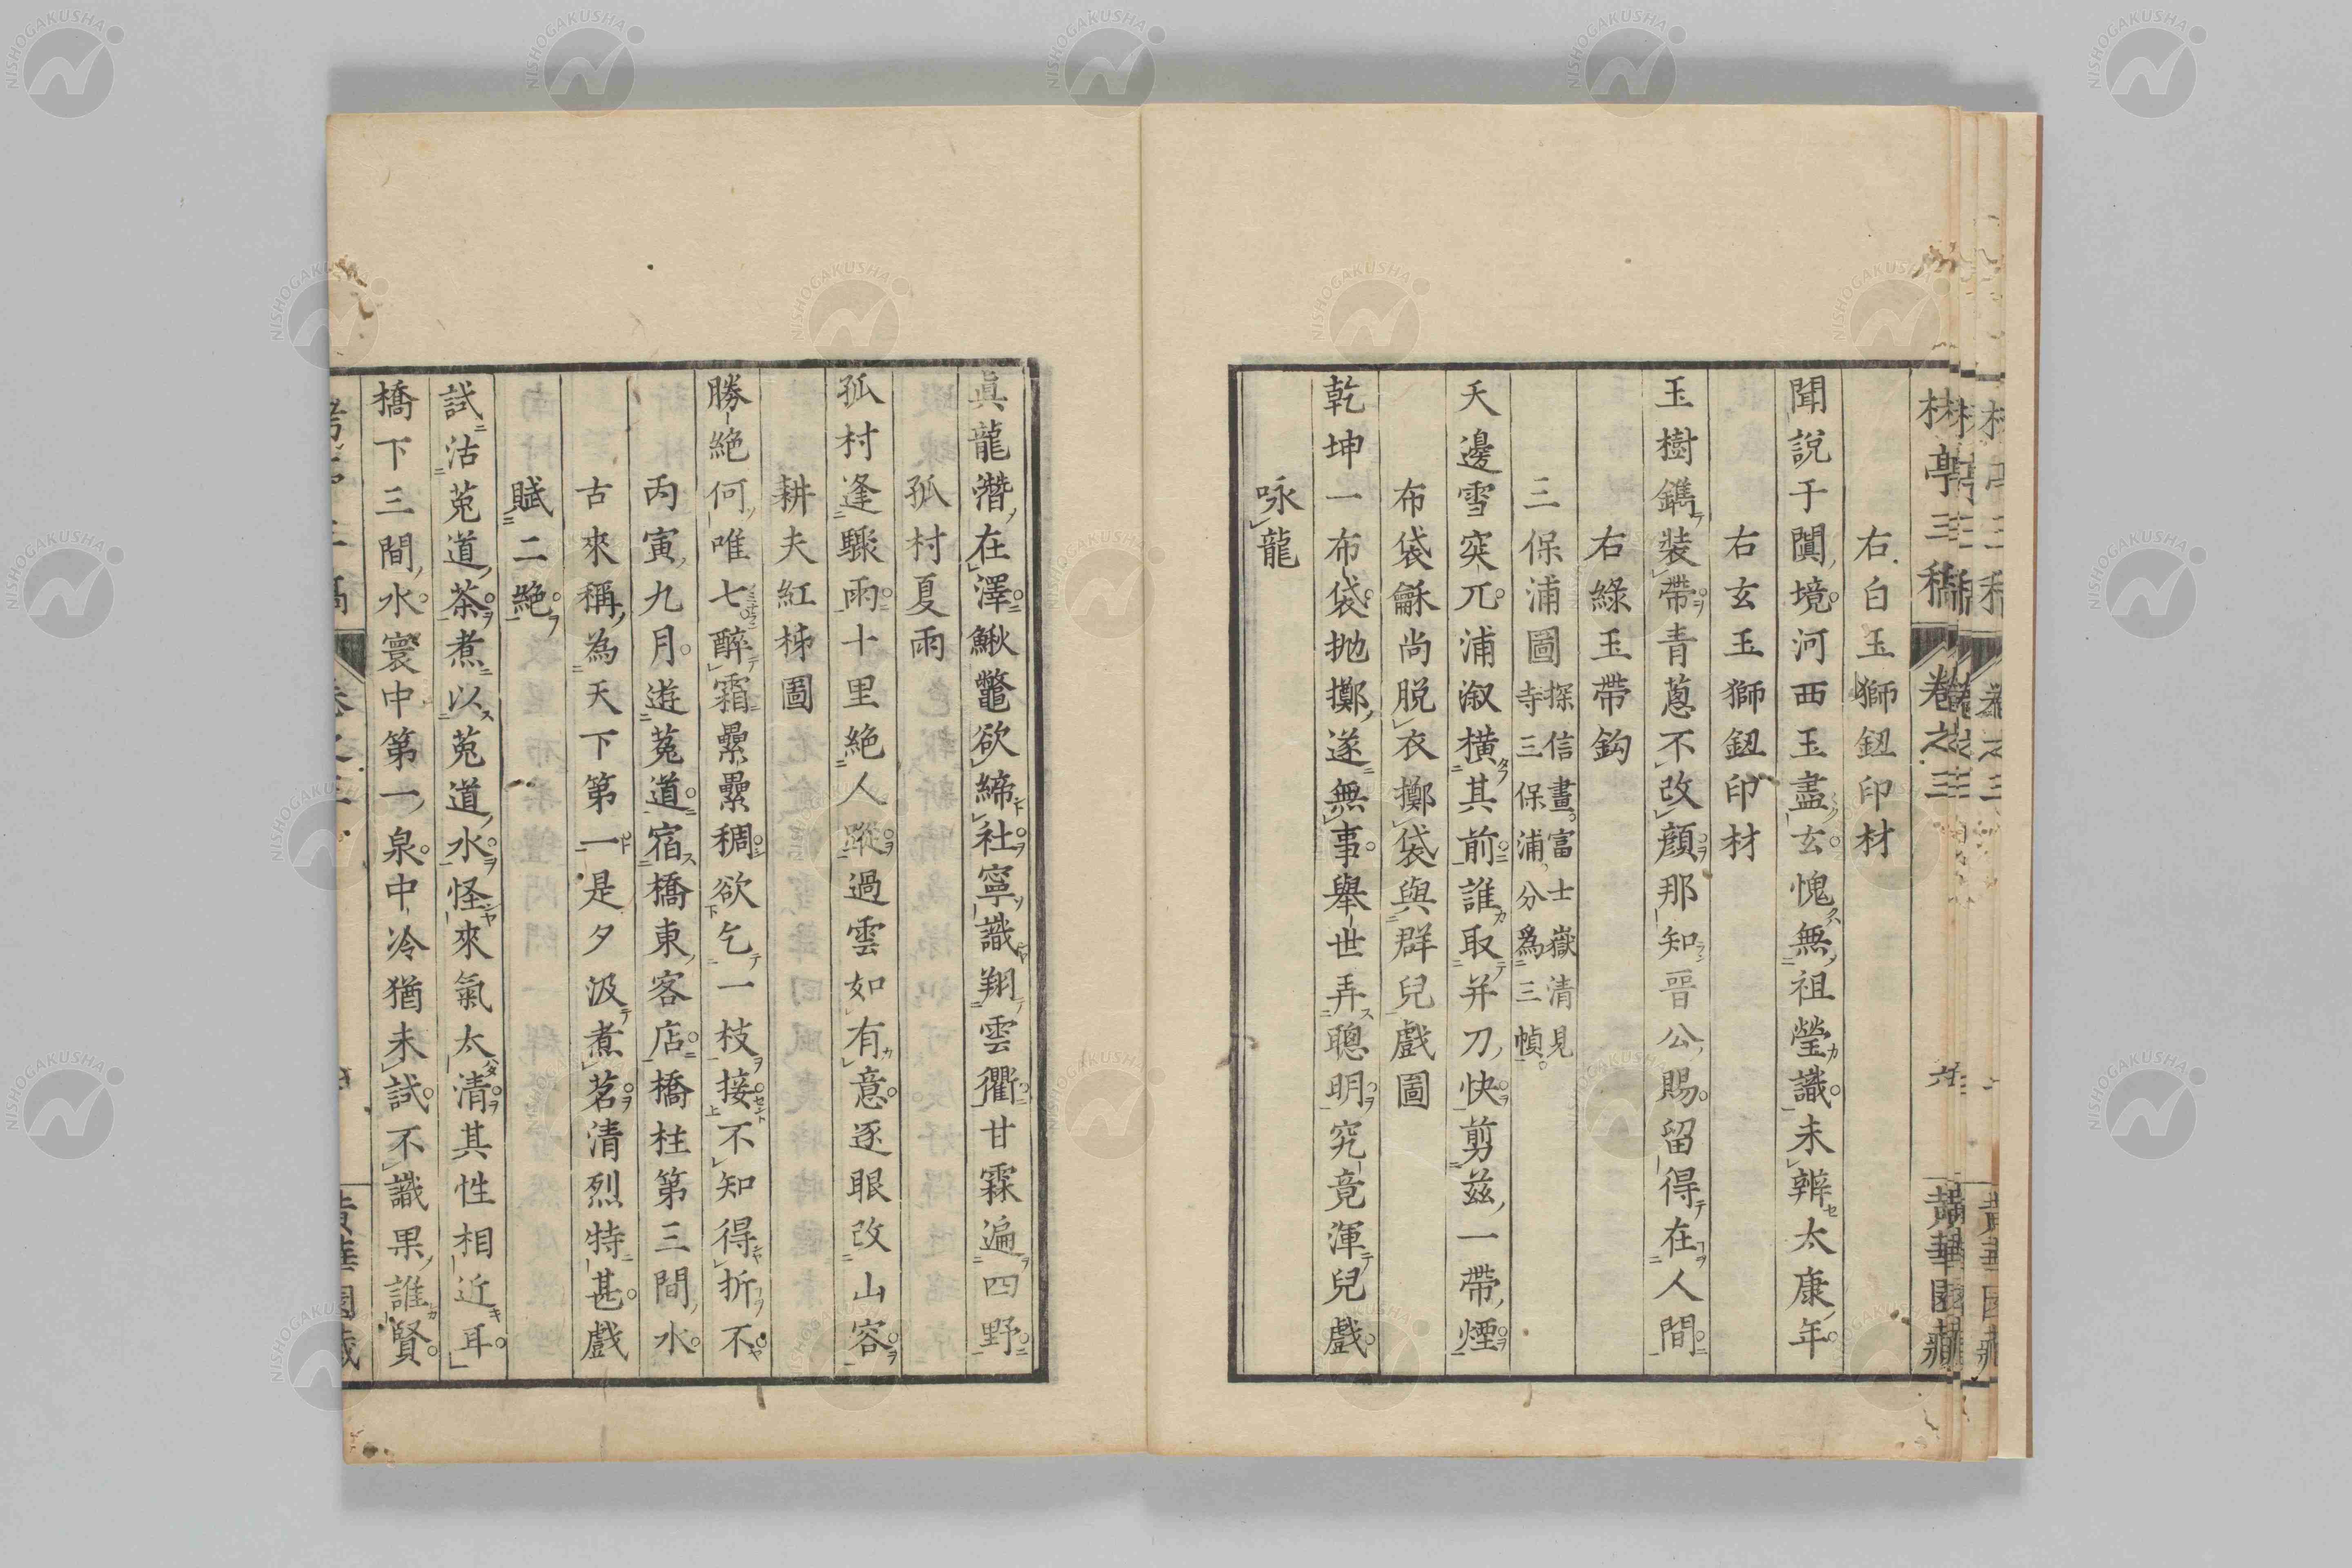 右白玉獅鈕印材
聞說于闐境河西玉盡玄愧無祖瑩識未辨太康年
右玄玉獅鈕印材
玉樹鐫裝帶青蔥不改顏那知晉公賜留得在人間
右綠玉帶鈎
三保浦圖 探信畫富士嶽清見寺三保浦分爲三幀
天邊雪突兀浦溆橫其前誰取并刀快剪茲一帶煙
布袋龢尚脱衣擲袋與群兒戲圖
乾坤一布袋拋擲遂無事舉世弄聰明究竟渾兒戲
咏龍
眞龍潛在澤鰍鼈欲締社寧識翔雲衢甘霖遍四野
孤村夏雨
孤村逢驟雨十里絕人蹤過雲如有意逐眼改山容
耕夫紅柹圖
勝絕何唯七醉霜纍纍稠欲乞一枝接不知得折不
丙寅九月遊菟道宿橋東客店橋柱第三間水
古來稱為天下第一是夕汲煮茗清烈特甚戲
賦二絕
試沽菟道茶煮以菟道水怪來氣太清其性相近耳
橋下三間水寰中第一泉中冷猶未試不識果誰賢
卷之三
黃華園藏
NISHOGAKUSHA